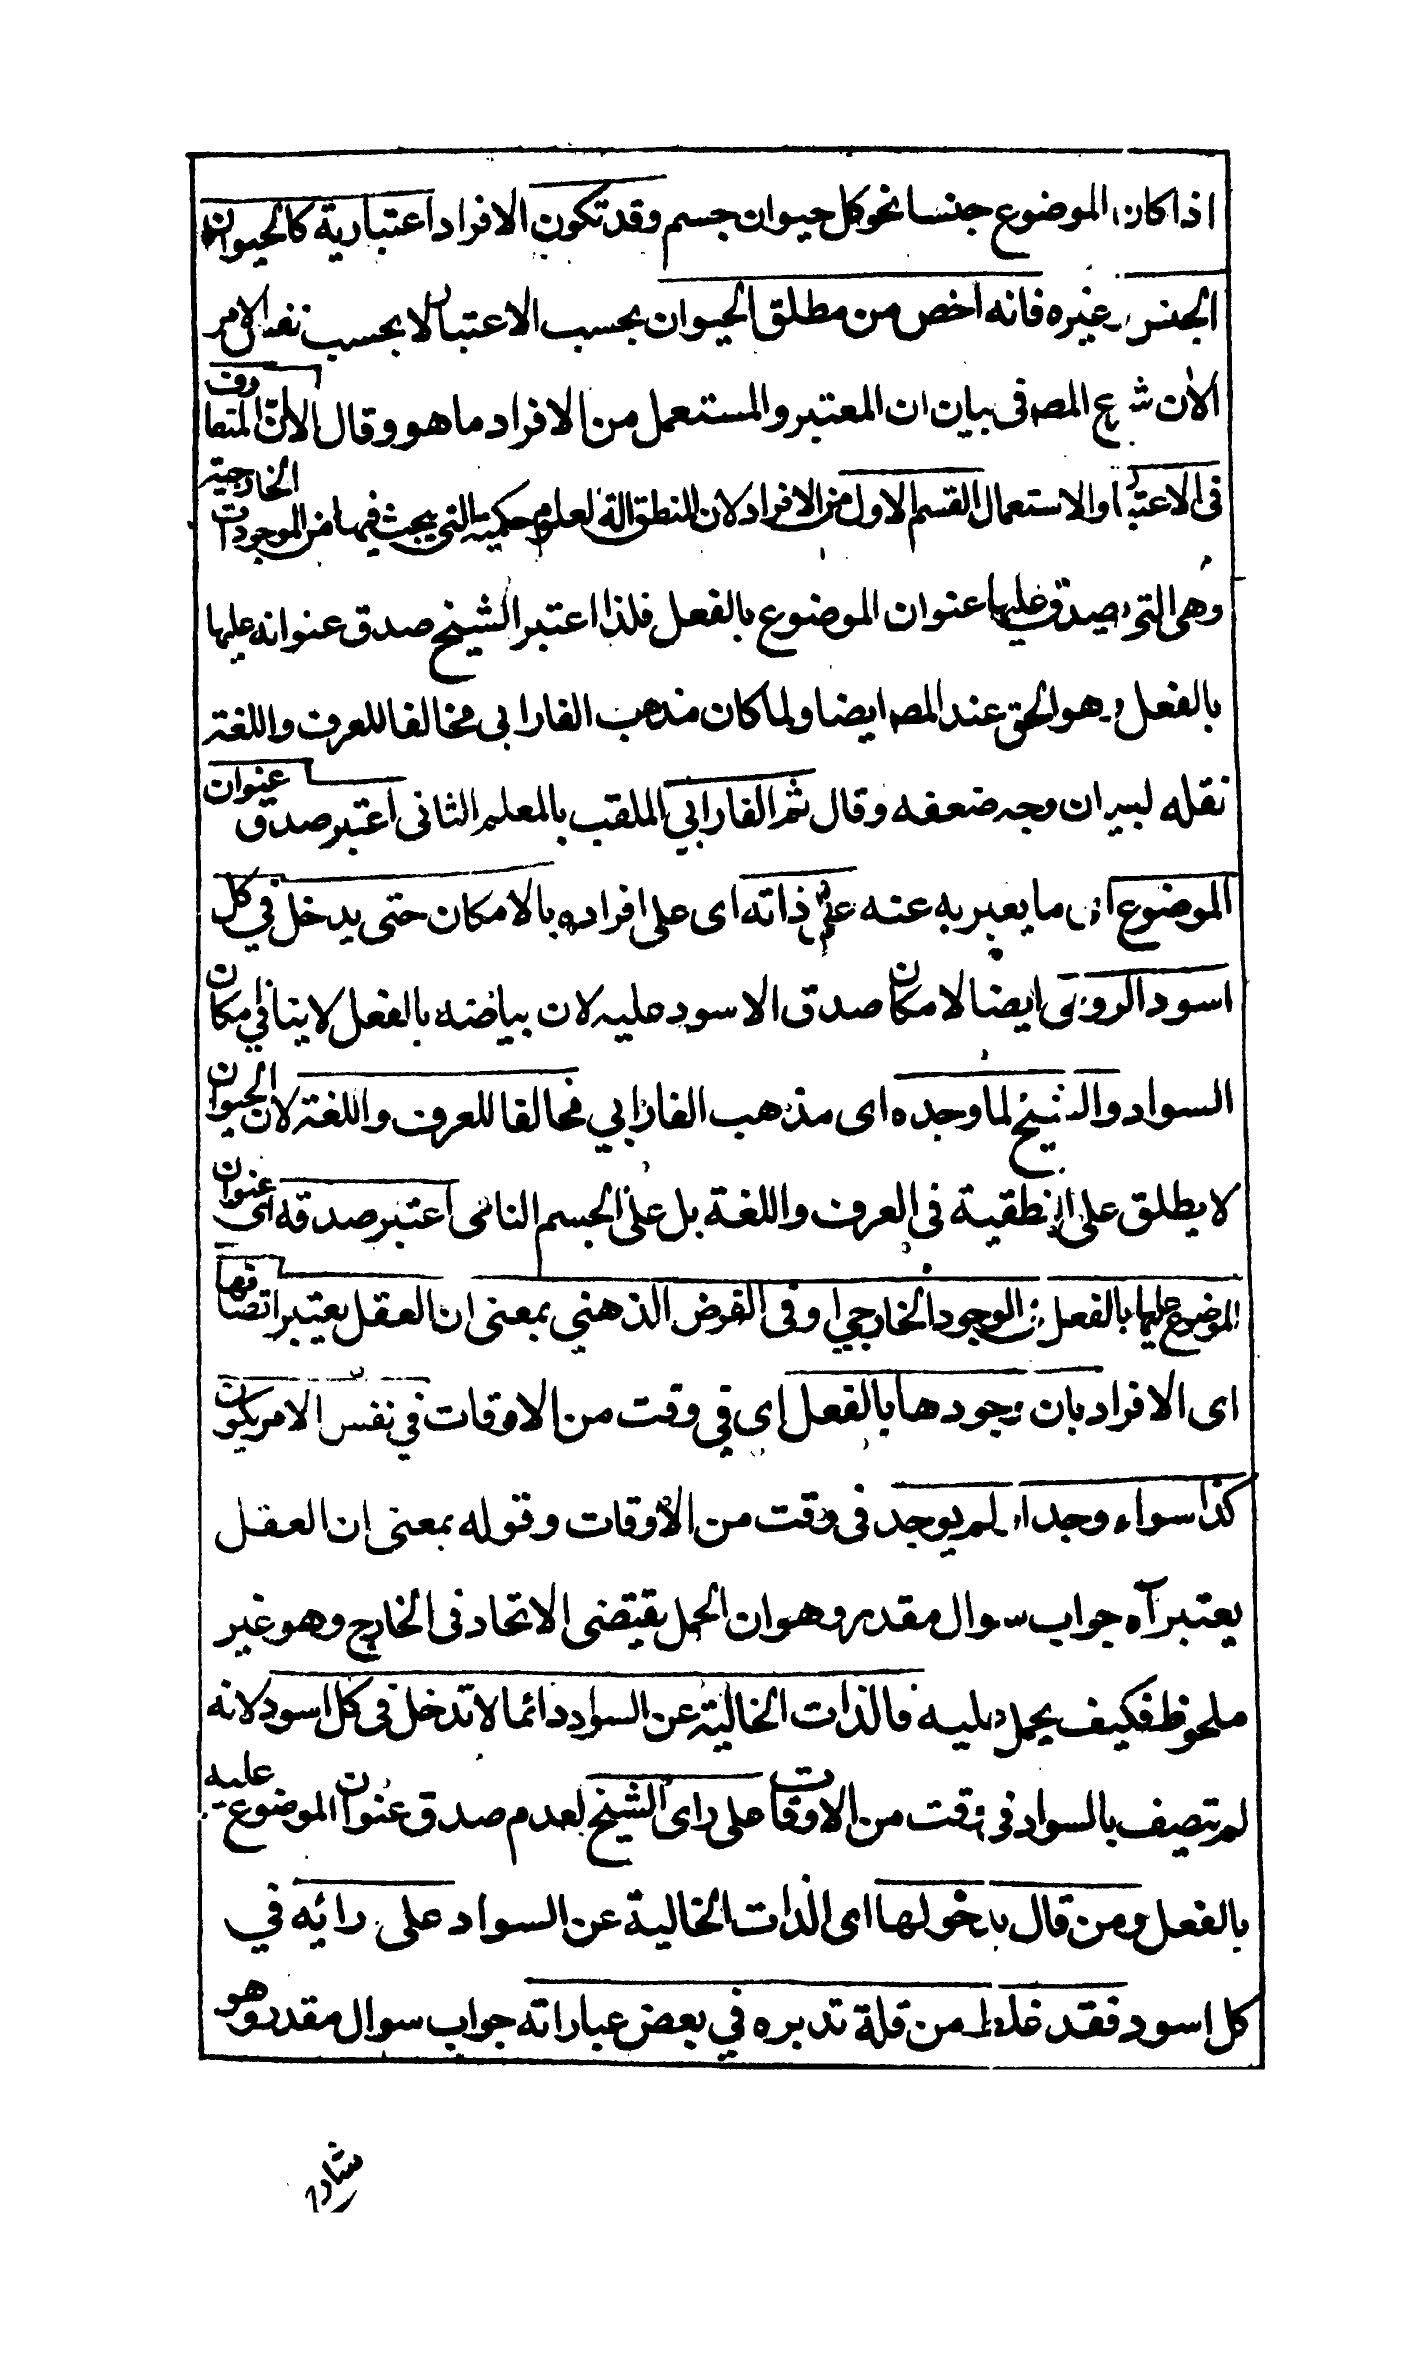 اذا كان الموضوع جنسا نحو كل حيوان جسم وقد تكون الافراد اعتبارية كالحيوان
الجنس وغيره فانه اخص من مطلق الحيوان بحسب الاعتبار لا بحسب نفس الامر
الان شرع المصـ فى بيان ان المعتبر والمستعمل من الافراد ما هو وقال الا ان المتعارف
فى الاعتبار والاستعمال القسم الاول من الافراد لان المنطق الة لعلوم حكمية التى يبحث فيها من الموجودات الخارجية
وهى التى يصدق عليها عنوان الموضوع بالفعل فلذا اعتبر الشيخ صدق عنوانه عليها
بالفعل وهو الحق عند المصـ ايضا ولما كان مذهب الفارابى مخالفا للعرف واللغة
نقله لبيان وجه ضعفه وقال ثم الفارابي الملقب بالمعلم الثانى اعتبر صدق عنوان
الموضوع اى ما يعبر به عنه على ذاته اى على افراده بالامكان حتى يدخل في كل
اسود الرومى ايضا لامكان صدق الاسود عليه لان بياضه بالفعل لا ينافي امكان
السواد والشيخ لما وجده اى مذهب الفارابي مخالفا للعرف واللغة لان الحيوان
لا يطلق على النطفية فى العرف واللغة بل على الجسم النامى اعتبر صدقه اى عنوان
الموضوع عليها بالفعل فى الوجود الخارجي او فى الفرض الذهني بمعنى ان العقل يعتبر اتصافها
اى الافراد بان وجودها بالفعل اى في وقت من الاوقات في نفس الامر يكون
كذا سواء وجد او لم يوجد فى وقت من الاوقات وقوله بمعنى ان العقل
يعتبر آه جواب سوال مقدر وهو ان الحمل يقتضى الاتحاد فى الخارج وهو غير
ملحوظ فكيف يحمل عليه فالذات الخالية عن السواد دائما لا تدخل فى كل اسود لانه
لم تتصف بالسواد فى وقت من الاوقات على راى الشيخ لعدم صدق عنوان الموضوع عليه
بالفعل ومن قال بدخولها اى الذات الخالية عن السواد على رائه في
كل اسود فقد غلط من قلة تدبره في بعض عباراته جواب سوال مقدر وهو